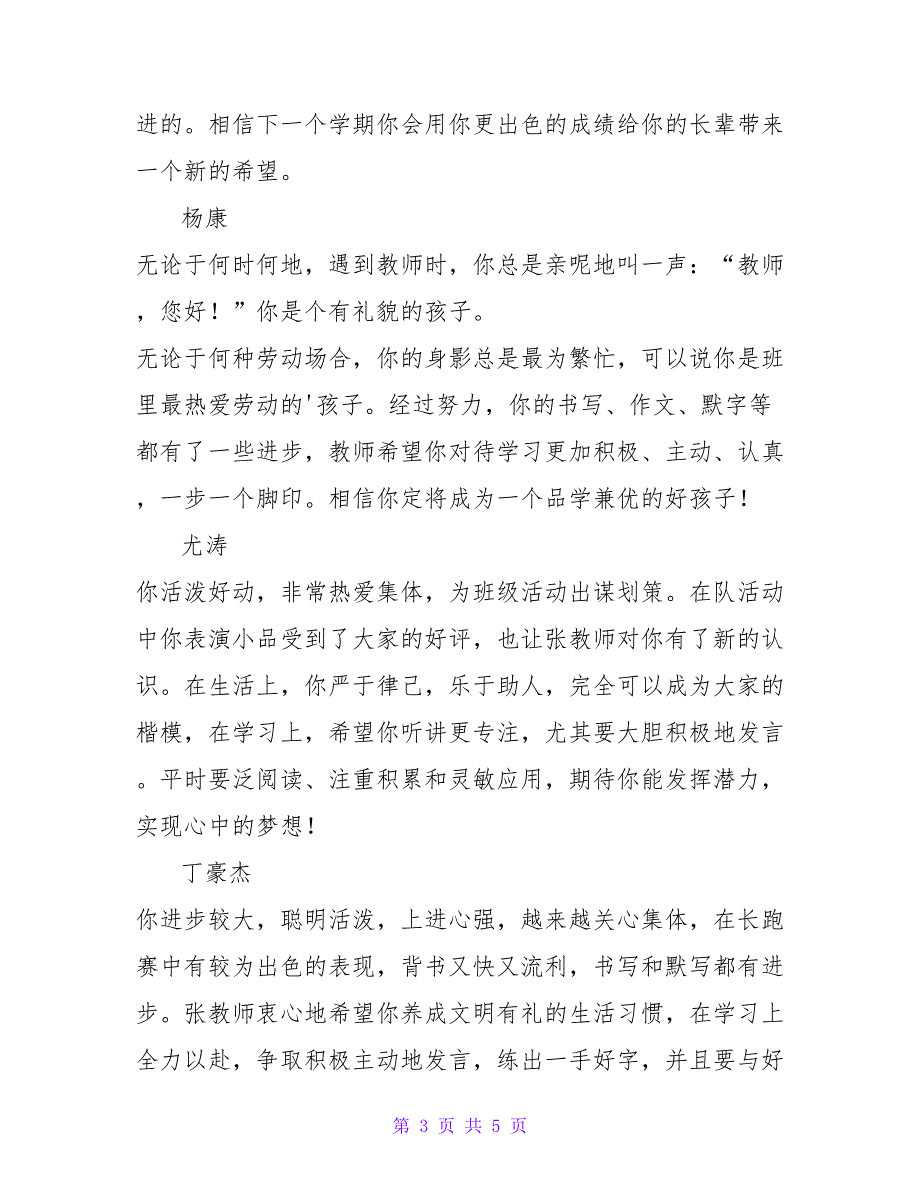 进的。相信下一个学期你会用你更出色的成绩给你的长辈带来
一个新的希望。
杨康
无论于何时何地，遇到教师时，你总是亲呢地叫一声：“教师
，您好！”你是个有礼貌的孩子。
无论于何种劳动场合，你的身影总是最为繁忙，可以说你是班
里最热爱劳动的'孩子。经过努力，你的书写、作文、默字等
都有了一些进步，教师希望你对待学习更加积极、主动、认真
，一步一个脚印。相信你定将成为一个品学兼优的好孩子！
尤涛
你活泼好动，非常热爱集体，为班级活动出谋划策。在队活动
中你表演小品受到了大家的好评，也让张教师对你有了新的认
识。在生活上，你严于律己，乐于助人，完全可以成为大家的
楷模，在学习上，希望你听讲更专注，尤其要大胆积极地发言
。平时要泛阅读、注重积累和灵敏应用，期待你能发挥潜力，
实现心中的梦想！
丁豪杰
你进步较大，聪明活泼，上进心强，越来越关心集体，在长跑
赛中有较为出色的表现，背书又快又流利，书写和默写都有进
步。张教师衷心地希望你养成文明有礼的生活习惯，在学习上
全力以赴，争取积极主动地发言，练出一手好字，并且要与好
第 3 页 共 5 页